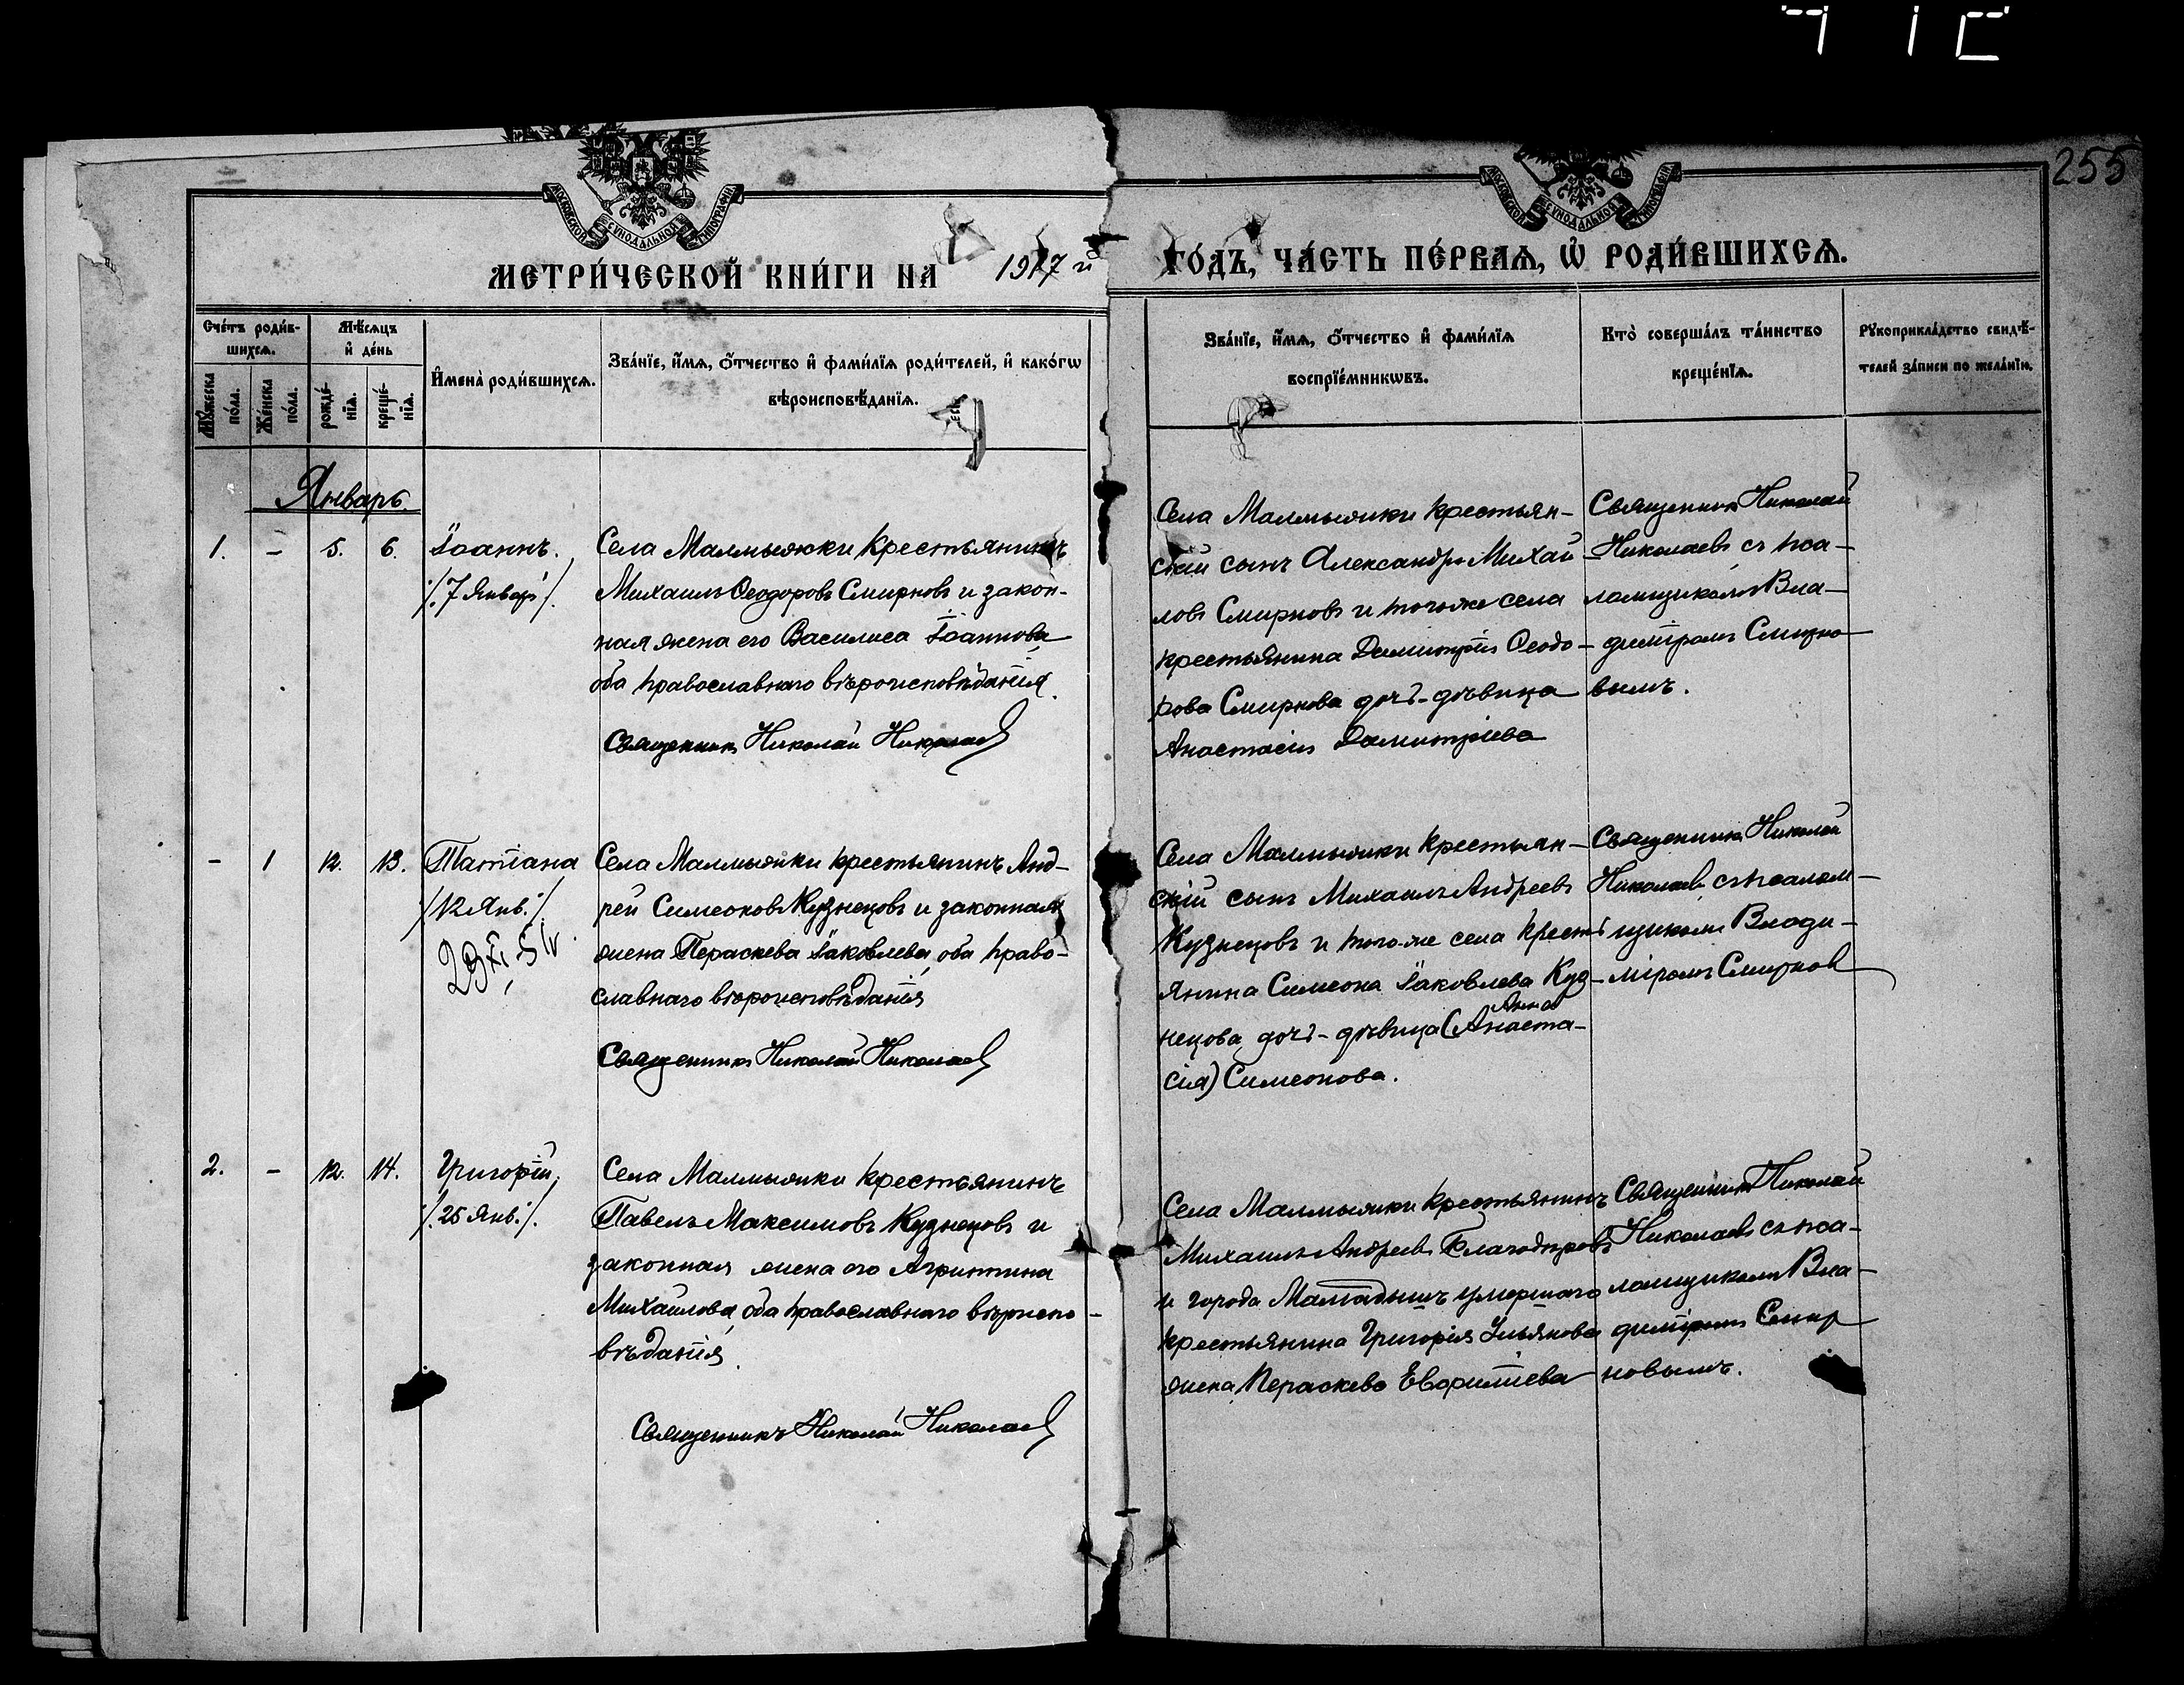 255
МОСКОВСКОЙ СѴНОДАЛЬНОЙ ТИПОГРАФІИ
МОСКОВСКОЙ СѴНОДАЛЬНОЙ ТИПОГРАФІИ
МЕТРИ́ЧЕСКОЙ КНИ́ГИ НА 1917 й ГО́ДЪ, ЧА́СТЬ ПЕ́РВАѦ, Ѡ҆ РОДИ́ВШИХСѦ.
Сче́тъ роди́в-
шихсѧ.
Мꙋ́жеска
по́ла.
Же́нска
по́ла.
Мѣ́сѧцъ
и҆ де́нь
рожде́-
нїѧ.
креще́-
нїѧ.
И҆мена̀ роди́вшихсѧ.
Зва́нїе, и҆́мѧ, ѻ҆́тчество и҆ фами́лїѧ роди́телей, и҆ како́гѡ
вѣроисповѣ́данїѧ.
Зва́нїе, и҆́мѧ, ѻ҆́тчество и҆ фами́лїѧ
воспрїе́мникѡвъ.
Кто̀ соверша́лъ та́инство
креще́нїѧ.
Рꙋкоприкла́дство свидѣ́-
телей за́писи по жела́нїю.
Январь
1. - 5. 6.
Іоаннъ.
/:7 Январ:/.
Села Малмыжки крестьянинъ
Михаилъ Ѳеодоровъ Смирновъ и закон-
ная жена его Василиса Іоаннова
оба православнаго вѣроисповѣданія.
Священникъ Николай Николаев
Села Малмыжки крестьян-
скій сынъ Александръ Михай-
ловъ Смирновъ и того-же села
крестьянина Димитрія Ѳеодо-
рова Смирнова дочь-дѣвица
Анастасія Димитріева
Священникъ Николай
Николаевъ съ пса-
ломщикомъ Вла-
диміромъ Смирно-
вымъ.
- 1 12. 13.
Татіана
/12 Янв:/.
Села Малмыжки крестьянинъ Анд-
рей Симеоновъ Кузнецовъ и законная
жена Параскева Іаковлева, оба право-
славнаго вѣроисповѣданія
Священникъ Николай Николаев
Села Малмыжки крестьян-
скій сынъ Михаилъ Андреевъ
Кузнецовъ и того-же села кресть
янина Симеона Іаковлева Куз-
Анна
нецова, дочь-дѣвица (Анаста-
сія) Симеонова.
Священникъ Николай
Николаевъ съ псалом-
щикомъ Влади-
міромъ Смирнов
2. - 12. 14.
Григорій,
/:25 Янв:/.
Села Малмыжки крестьянинъ
Павелъ Максимовъ Кузнецовъ и
законная жена его Агриппина
Михайлова, оба православнаго вѣроиспо-
вѣданія.
Священникъ Николай Николаев
Села Малмыжки крестьянинъ
Михаилъ Андреевъ
и города умершаго
крестьянина Григорія Ульянова
жена Параскева
Священникъ Николай
Николаевъ съ пса-
ломщикомъ Вла-
диміромъ Смир
новымъ.